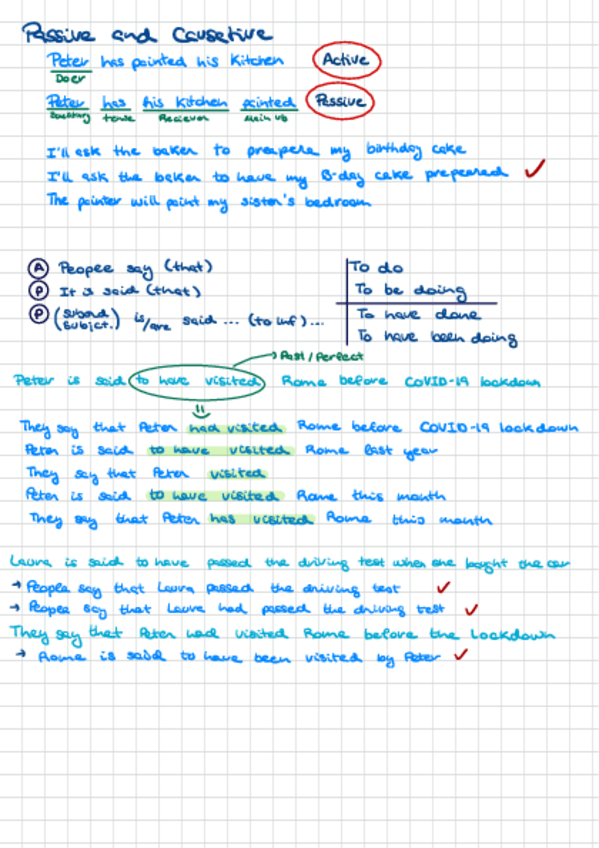 Passive and Causative
Peter has painted his Kitchen Active
Doer
Peter has his Kitchen painted Passive
tense Reciever Main vb
I'll ask the baker to preapere my birthday cake
I'll ask the baker to have my B-day cake prepeared ✓
The painter will paint my sister's bedroom
A Peopee say (that)
P It is said (that)
P (subord subject.) is/are said ... (to inf)...
To do
To be doing
To have done
To have been doing
Past/Perfect
Peter is said to have visited Rome before COVID-19 lockdown
They say that Peter had visited Rome before COVID-19 lockdown
Peter is said to have visited Rome last year
They say that Peter visited
Peter is said to have visited Rome this month
They say that Peter has visited Rome this month
Laura is said to have passed the driving test when she bought the car
→ People say that Laura passed the driving test ✓
→ Peopee say that Laura had passed the driving test ✓
They say that Peter had visited Rome before the lockdown
→ Rome is said to have been visited by Peter ✓